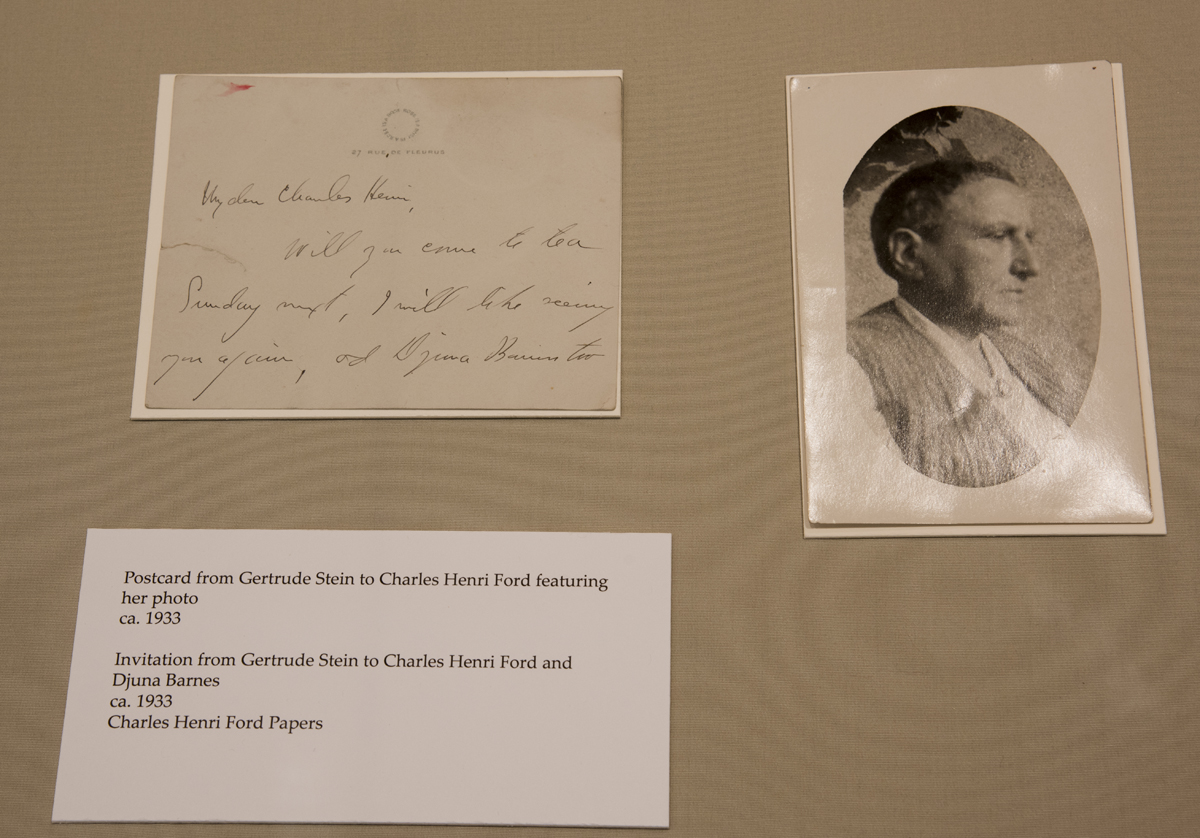 27 RUE DE FLEURUS
My dear Charles Henri,
Will you come to tea
Sunday next, I will like seeing
you again, and Djuna Barnes too
Postcard from Gertrude Stein to Charles Henri Ford featuring
her photo
ca. 1933
Invitation from Gertrude Stein to Charles Henri Ford and
Djuna Barnes
ca. 1933
Charles Henri Ford Papers